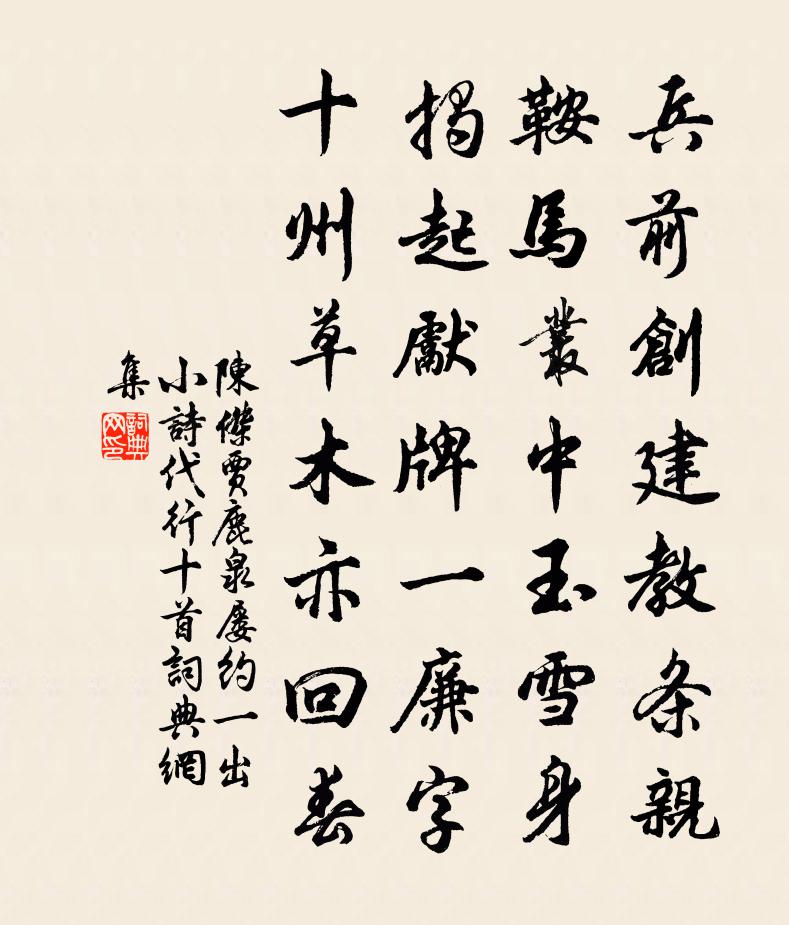 兵前創建教条親
鞍馬叢中玉雪身
揭起獻牌一廉字
十州草木亦回春
陳傑賈鹿泉屡約一出
小詩代行十首詞典網
集
詞典网印